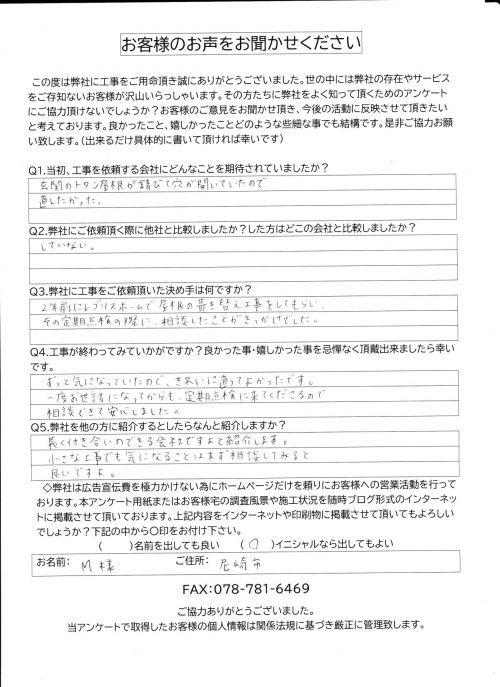 お客様のお声をお聞かせください
この度は弊社に工事をご用命頂き誠にありがとうございました。世の中には弊社の存在やサービス
をご存知ないお客様が沢山いらっしゃいます。その方たちに弊社をよく知って頂くためのアンケート
にご協力頂けないでしょうか？お客様のご意見をお聞かせ頂き、今後の活動に反映させて頂きたい
と考えております。良かったこと、嬉しかったことどのような些細な事でも結構です。是非ご協力お願
い致します。（出来るだけ具体的に書いて頂ければ幸いです）
Q1.当初、工事を依頼する会社にどんなことを期待されていましたか？
玄関のトタン屋根が錆びて穴が開いていたので
直したかった。
Q2.弊社にご依頼頂く際に他社と比較しましたか？した方はどこの会社と比較しましたか？
していない。
Q3.弊社に工事をご依頼頂いた決め手は何ですか？
2年前にレブリスホームで屋根の葺き替え工事をしてもらい、
その定期点検の際に、相談したことがきっかけでした。
Q4.工事が終わってみていかがですか？良かった事・嬉しかった事を忌憚なく頂戴出来ましたら幸い
です。
ずっと気になっていたので、きれいに直ってよかったです。
一度お世話になってからも、定期点検に来てくださるので
相談できて安心しました。
Q5.弊社を他の方に紹介するとしたらなんと紹介しますか？
長く付き合いのできる会社ですよと紹介します。
小さな工事でも気になることはまず相談してみると
良いですよ。
◇弊社は広告宣伝費を極力かけない為にホームページだけを頼りにお客様への営業活動を行って
おります。本アンケート用紙またはお客様宅の調査風景や施工状況を随時ブログ形式のインターネッ
トに掲載させて頂いております。上記内容をインターネットや印刷物に掲載させて頂いてもよろしい
でしょうか？下記の中から〇印をお付け下さい。
（　）名前を出しても良い　（〇）イニシャルなら出してもよい
お名前： M様　ご住所： 尼崎市
FAX：078-781-6469
ご協力ありがとうございました。
当アンケートで取得したお客様の個人情報は関係法規に基づき厳正に管理致します。